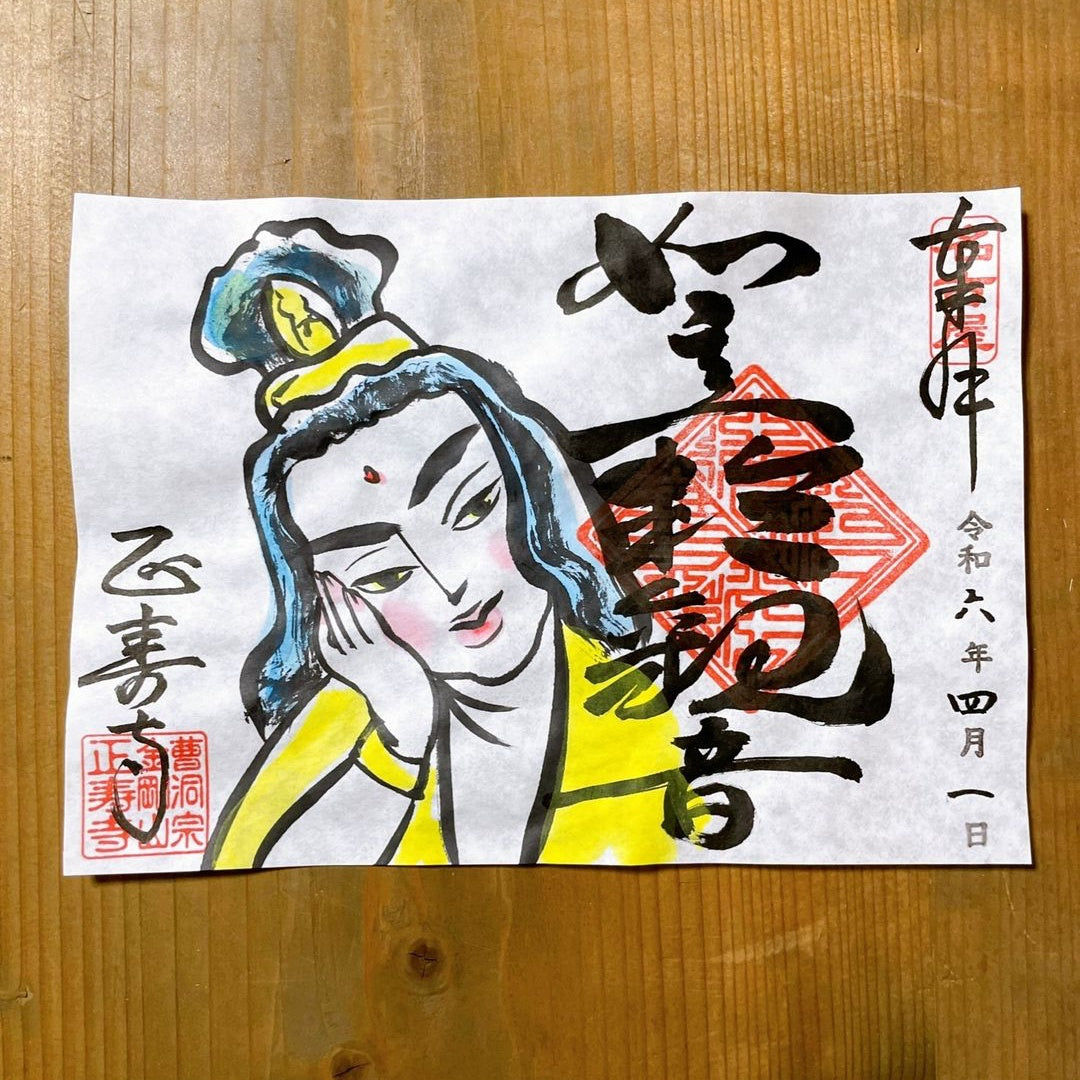 奉拝
令和六年四月一日
如意輪観音
正寿寺
曹洞宗
金剛山
正壽寺